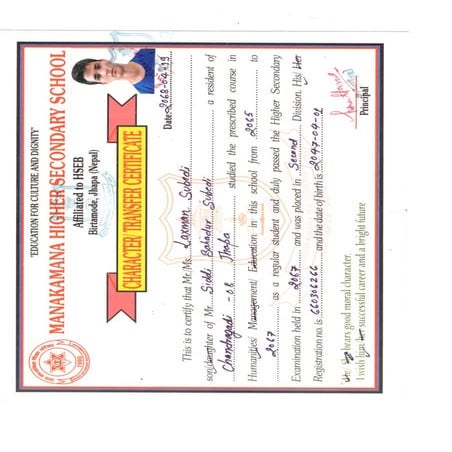 "EDUCATION FOR CULTURE AND DIGNITY"
MANAKAMANA HIGHER SECONDARY SCHOOL
Affiliated to HSEB
Birtamode, Jhapa (Nepal)
CHARACTER TRANSFER CERTIFICATE
Date:2068-04-19
This is to certify that Mr./Ms. Laxman Subedi
son/daughter of Mr. Siddi Bahadur Subedi a resident of
Chandragadi -08 Jhapa studied the prescribed course in
Humanities/ Management/ Education in this school from 2065 to
2067 as a regular student and duly passed the Higher Secondary
Examination held in 2067 and was placed in Second Division. His/ Her
Registration no. is 660306266 and the date of birth is 2047-04-01
He bears good moral character.
I wish him successful career and a bright future
Principal